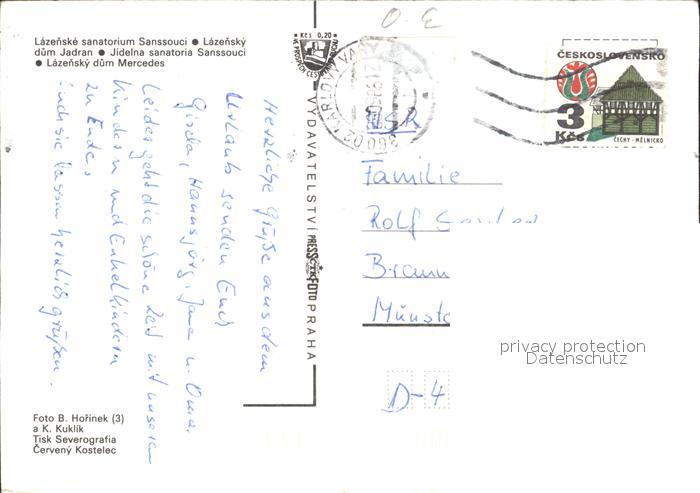 Lázeňské sanatorium Sanssouci ● Lázeňský
dům Jadran ● Jídelna sanatoria Sanssouci
● Lázeňský dům Mercedes
Herzliche Grüße aus dem
Urlaub senden Euch
Gisela, Hannsjörg, Jana u. Oma.
Leider geht die schöne Zeit mit unseren
Kindern und Enkelkindern
zu Ende
sie lassen herzlich grüßen.
Foto B. Hořínek (3)
a K. Kuklík
Tisk Severografia
Červený Kostelec
Kčs 0,20
VYDAVATELSTVÍ PRESSFOTO PRAHA
ČTK
O. E
KARLOVY VARY
360 02
ČESKOSLOVENSKO
3
Kčs
ČECHY - MĚLNICKO
Familie
Rolf
Braun
Münste
D-4
privacy protection
Datenschutz